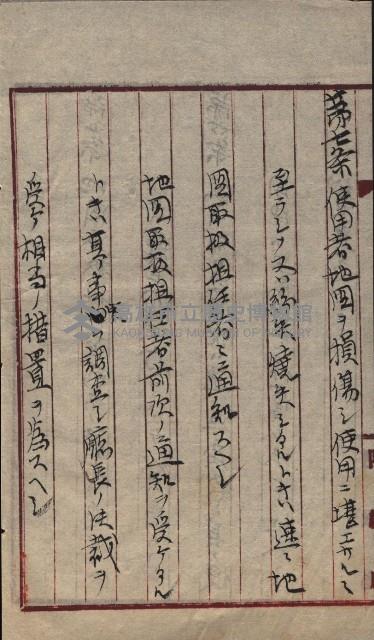 第七条 使用者地図ヲ損傷シ使用ニ堪エサルニ
至ラシメ又ハ紛失焼失シタルトキハ速ニ地
図取扱担任者ニ通知スヘシ
地図取扱担任者前項ノ通知ヲ受ケタル
トキハ其ノ事由ヲ調査シ廳長ノ決裁ヲ
受ケ相当ノ措置ヲ為スヘシ
高雄市立歷史博物館
KAOHSIUNG MUSEUM OF HISTORY